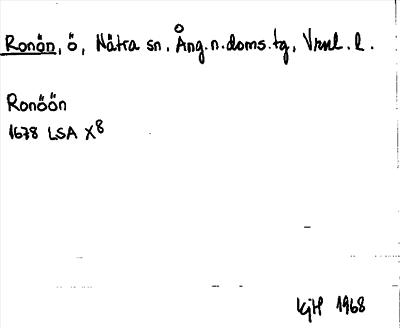 Ronön, ö, Nätra sn, Ång.n.doms.tg, Vrnl. l.
Ronöön
1678 LSA X8
KjH 1968